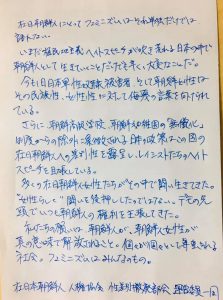 在日朝鮮人にとって フェミニズムは それ単独だけでは
語れない。
いまだ植民地主義、ヘイトスピーチが吹き荒れる日本の中で
朝鮮人として生きていくことだけでも辛く大変なことだ。
今も旧日本軍性奴隷被害者、そして朝鮮女性は
その民族性、女性性に対して侮辱の言葉を向けられ
ている。
さらに、朝鮮高級学校、朝鮮幼稚園の「無償化」
制度からの除外に象徴される日本政府による国の
在日朝鮮人への差別性を露呈し、レイシストたちのヘイト
スピーチを助長している。
多くの在日朝鮮人女性たちがその中で闘い生きてきた。
"女性らしく"闘いを後押ししたのじゃない、女性の先
頭でいつも朝鮮人の権利を主張してきた。
私たちの願いは、朝鮮人が、朝鮮女性が
真の意味で解放されること、個々が個として尊重される
社会。フェミニズムはみんなのもの。
在日本朝鮮人 人権協会 性差別撤廃部会